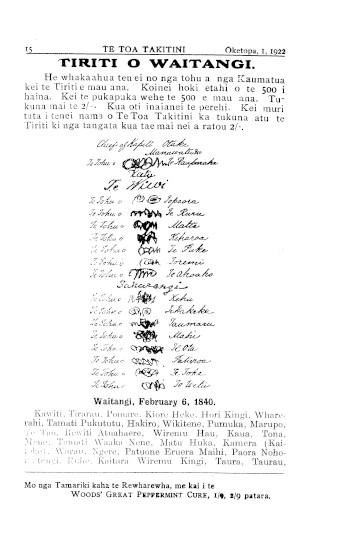 15 TE TOA TAKITINI Oketopa, 1, 1922
TIRITI O WAITANGI.
He whakaahua tenei no nga tohu a nga Kaumatua
kei te Tiriti e mau ana. Koinei hoki etahi o te 500 i
haina. Kei te pukapaka wehe te 500 e mau ana. Tu-
kuna mai te 2/-. Kua oti inaianei te perehi. Kei muri
tuta i tenei namo o Te Toa Takitini ka tukuna atu te
Tiriti ki nga tangata kua tae mai nei a ratou 2/-.
Chief of Kapiti Otaki
Manawatu
Te Tohu o Te Rauparaha
Te Wiwi
Te Tohu o Topaora
Te Tohu o Te Ruru
Te Tohu o Matia
Te Tohu o Keharoa
Te Tohu o Te Puke
Te Tohu o Toremi
Te Tohu o Te Ahoaho
Te Tohu o Kehu
Te Tohu o Te Kakeke
Te Tohu o Taumaru
Te Tohu o Mahi
Te Tohu o Te Ota
Te Tohu o
Te Tohu o Te Toke
Te Tohu o Te Wetu
Waitangi, February 6, 1840.
Kawiti, Tirarau, Pomare, Kiore Heke, Hori Kingi, Whare-
rahi, Tamati Pukututu, Hakiro, Wikitene, Pumuka, Marupo,
Te Tao, Rewiti Atuahaere, Wiremu Hau, Kaua, Tona,
Mene, Tomati Waaka Nene, Matu Huka, Kamera (Kai-
Warau, Ngere, Patuone Eruera Maihi, Paora Noho-
Ruhe, Kaitara Wiremu Kingi, Taura, Taurau,
Mo nga Tamariki kaha te Rewharewha, me kai i te
WOODS' GREAT PEPPERMINT CURE, 1/9, 2/9 patara.